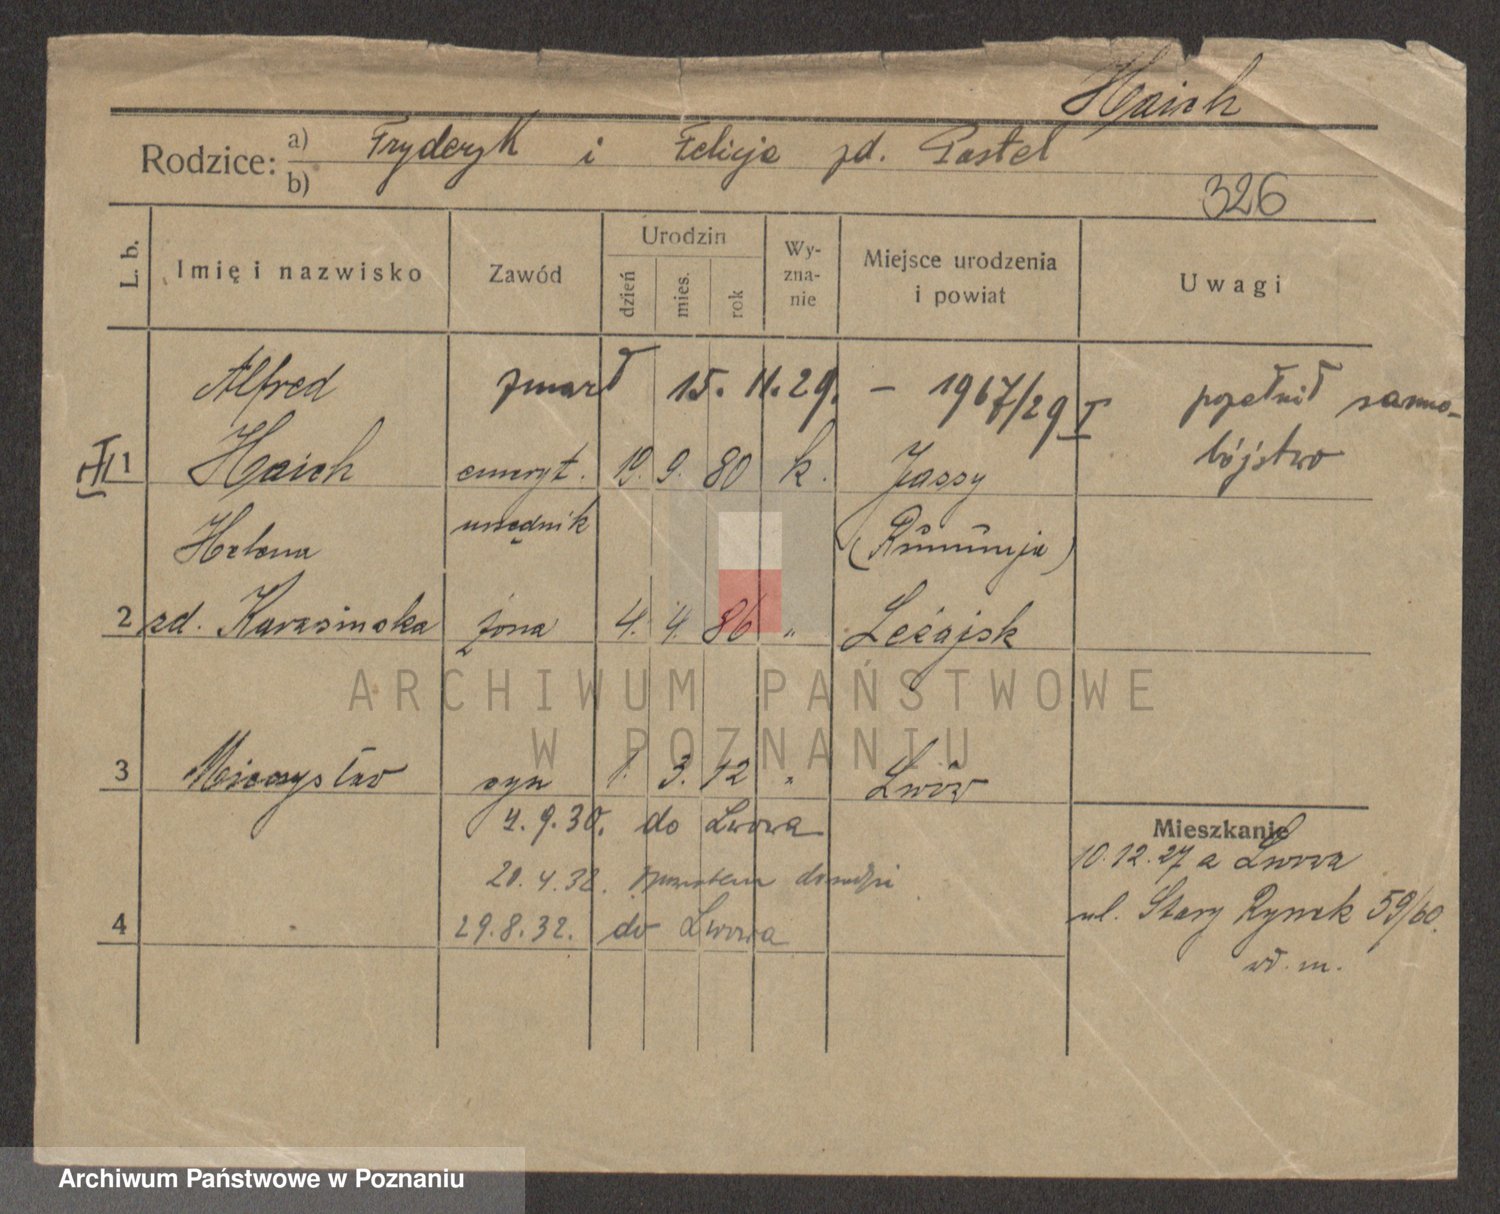 Haich
Rodzice: a) Fryderyk i Felicja zd. Pastel
b)
326
L. b.
Imię i nazwisko
Zawód
Urodzin
dzień
mies.
rok
Wy-
zna-
nie
Miejsce urodzenia
i powiat
Uwagi
Alfred zmarł 15. 11. 29. – 1967/29 I popełnił samo-
III 1 Haich emeryt. 19. 9. 80 k. Jassy bójstwo
urzędnik
Helena (Rumunja)
2 zd. Karasinska żona 4. 4. 86 " Leżajsk
3 Mieczysław syn 1. 3. 12 " Lwów
4. 9. 30. do Lwowa
20. 4. 32.
4 29. 8. 32. do Lwowa
Mieszkanie
10. 12. 27 z Lwowa
ul. Stary Rynek 59/60.
wł. m.
ARCHIWUM PAŃSTWOWE
W POZNANIU
Archiwum Państwowe w Poznaniu